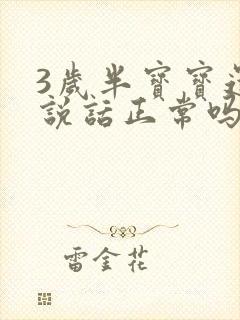 3歲半寶寶
說話正常嗎
雷金花